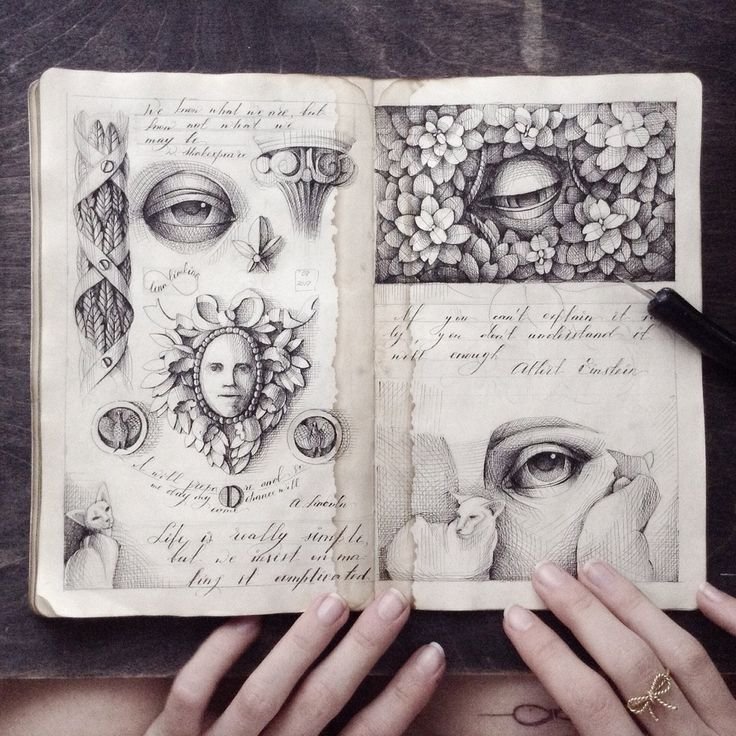 We know what we are, but
know not what we
may be
Shakespeare
D
D
D
I will prepare and
me day my Dchance will
come A. Lincoln
Life is really simple,
but we insist on ma-
king it complicated
If you can't explain it
ly, you don't understand it
well enough
Albert Einstein